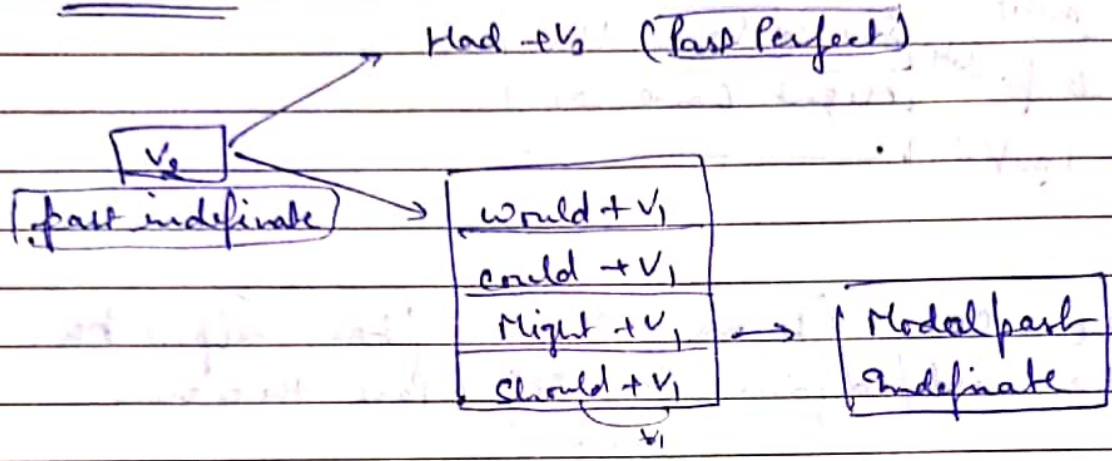 Had + V3 (Past Perfect)
V2
past indefinate
would + V1
could + V1
Might + V1
Should + V1
V1
Modal past
Indefinate